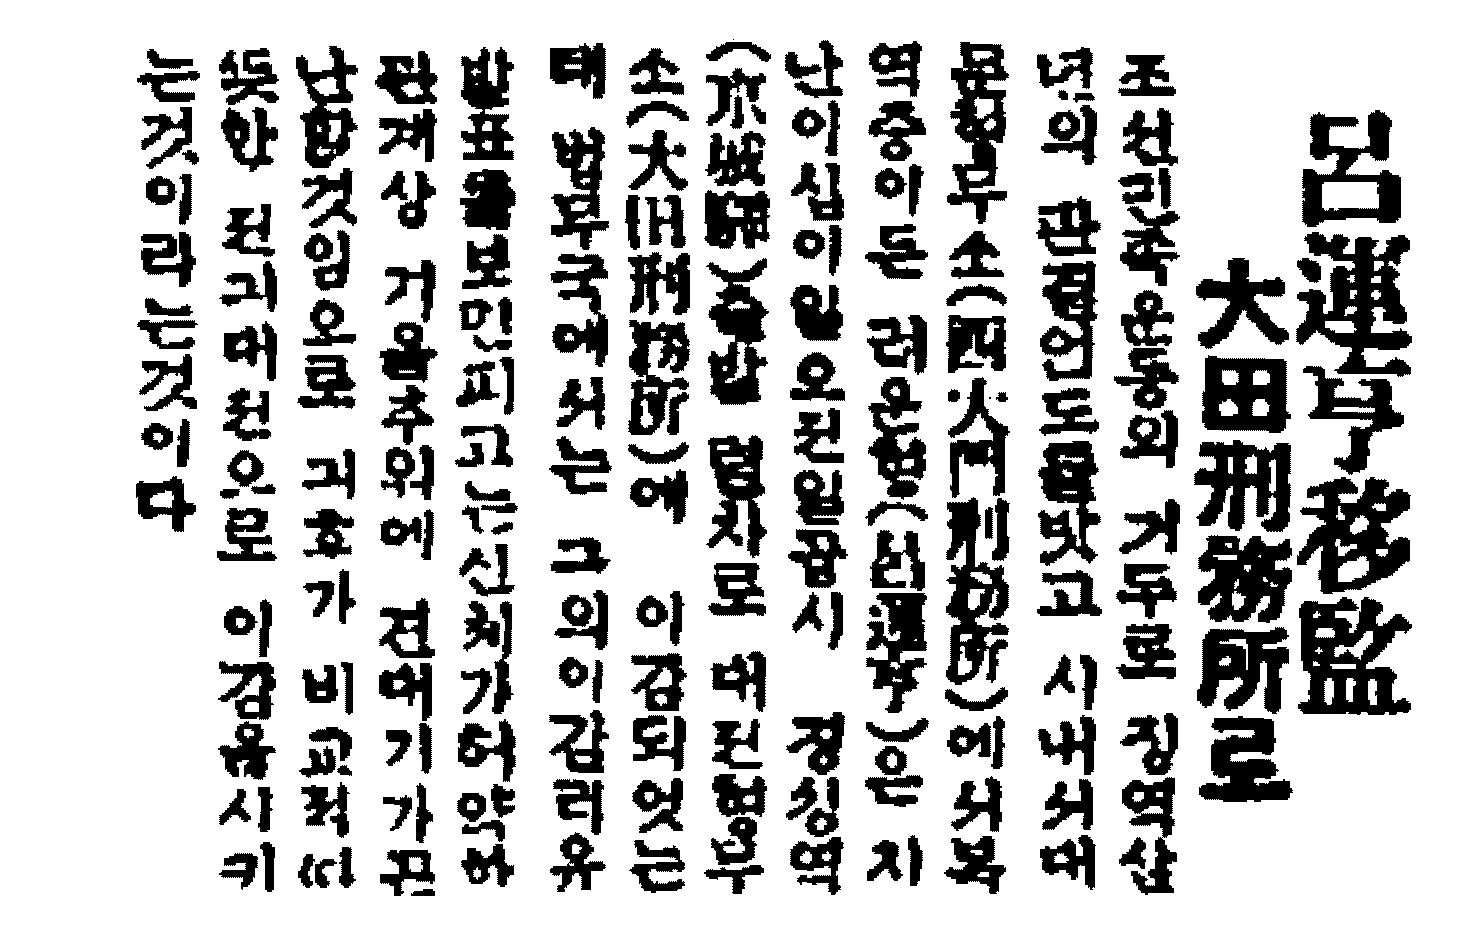 呂運亨移監
大田刑務所로
조선민족운동의 거두로 징역삼
년의 판결언도를맛고 시내서대
문형무소(西大門刑務所)에서복
역중이든 려운형(呂運亨)은 지
난이십이일오전일곱시 경성역
(京城驛)출발 렬차로 대전형무
소(大田刑務所)에 이감되엇는
태 법무국에서는 그의이감리유
발표를보민피고는신체가허약하
관계상 거울추위에 견대기가곤
난할것임으로 긔후가 비교적따
뜻한 전긔대전으로 이감을시키
는것이라는것이다